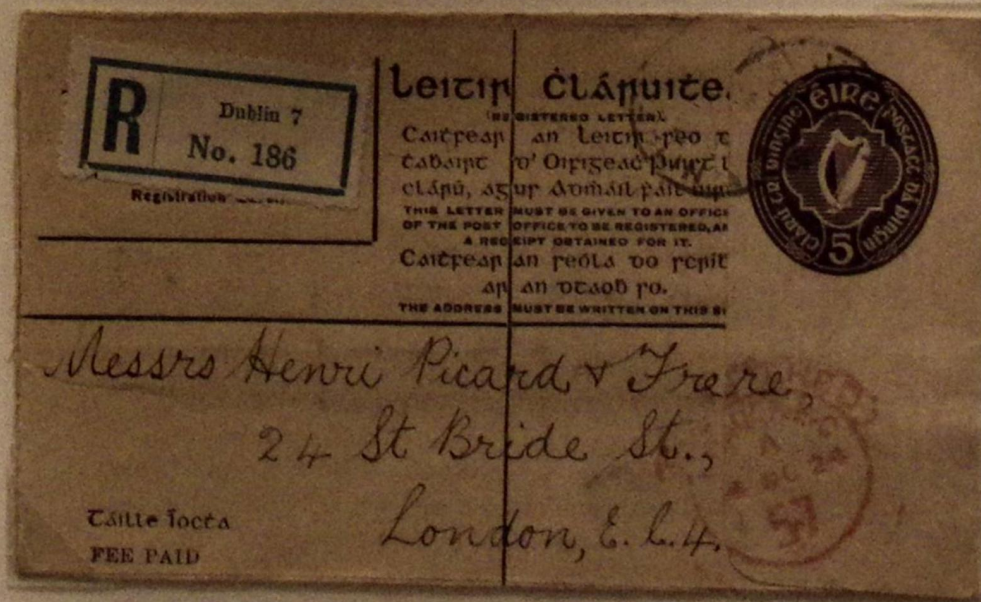 R
Dublin 7
No. 186
Registration
Leitir Ċláruiṫe.
(REGISTERED LETTER).
Caiṫfear an leitir seo
ṫaḃairt d' Oifigeaċ Puist
clárú, agus admáil fáil
THIS LETTER MUST BE GIVEN TO AN OFFIC
OF THE POST OFFICE TO BE REGISTERED, AN
A RECEIPT OBTAINED FOR IT.
Caiṫfear an seóla do scríḃ
ar an dtaoḃ so.
THE ADDRESS MUST BE WRITTEN ON THIS SI
ÉIRE
5
Messrs Henri Picard & Frere,
24 St Bride St.,
London, E.C.4.
Táille íocṫa
FEE PAID